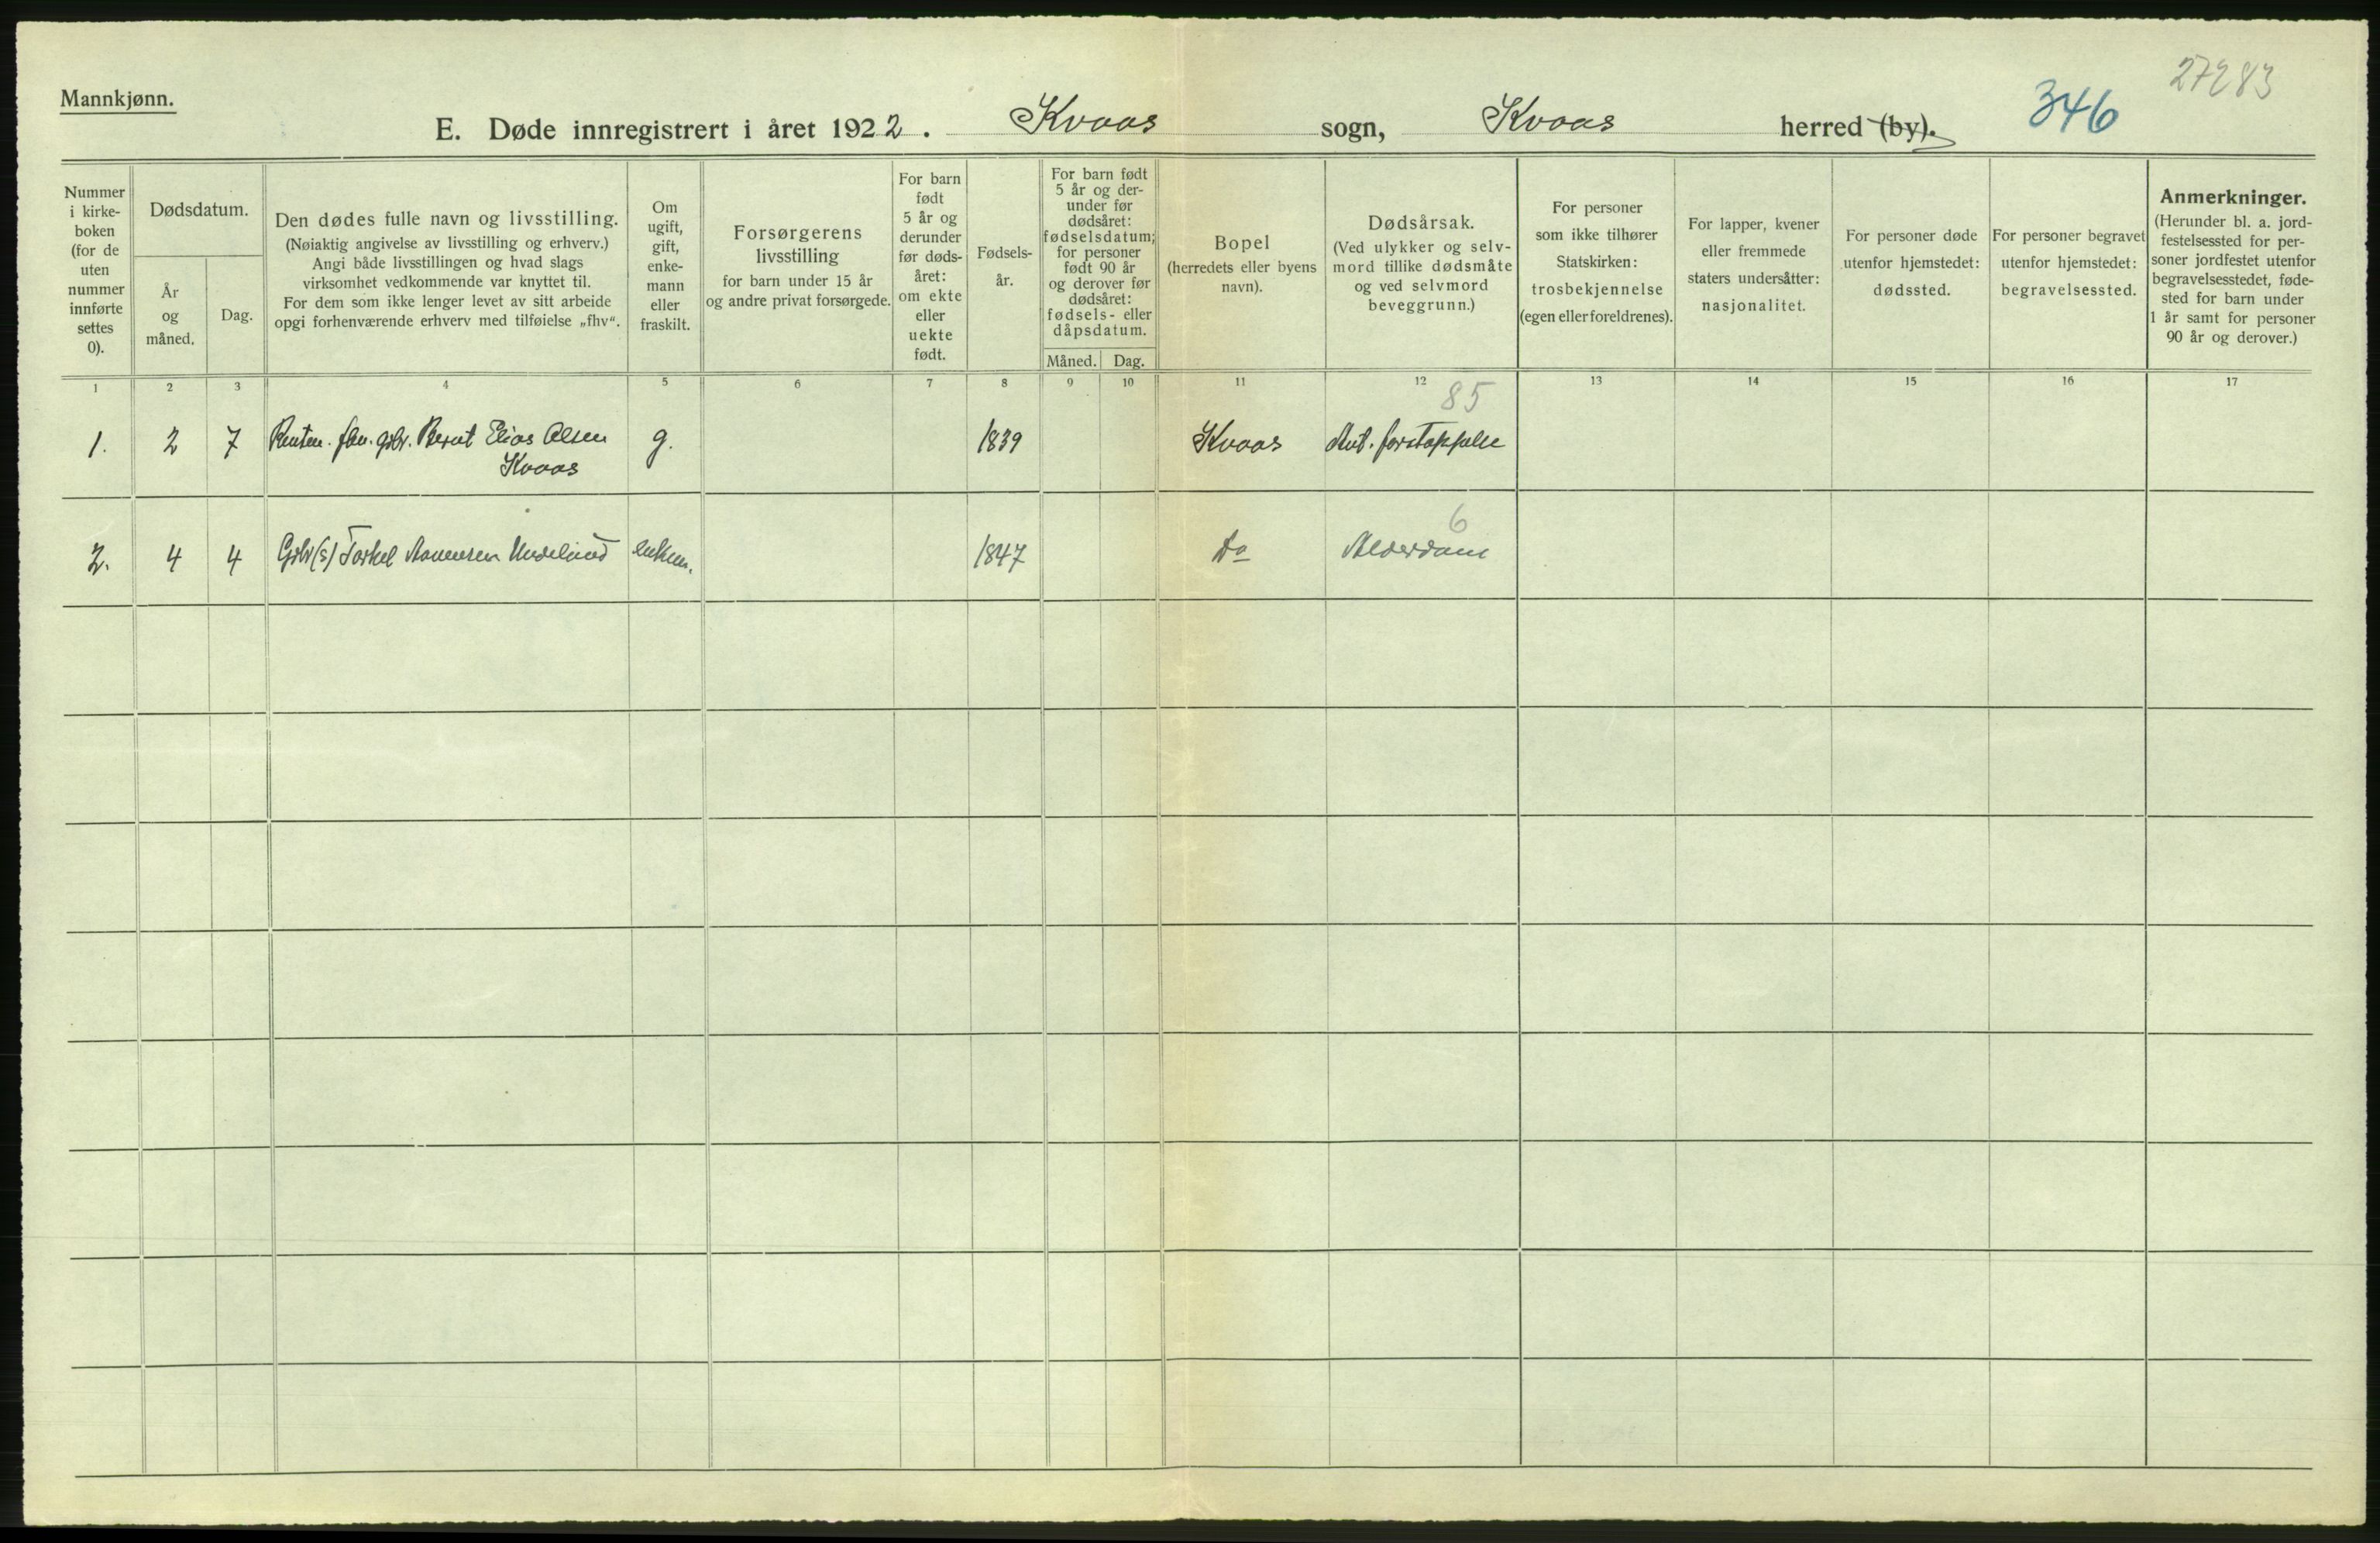 27283
Mannkjønn.
346
E. Døde innregistrert i året 1922. Kvaas sogn, Kvaas herred (by).
Nummer
i kirke-
boken
(for de
uten
nummer
innførte
settes
0).
Dødsdatum.
År
og
måned.
Dag.
Den dødes fulle navn og livsstilling.
(Nøiaktig angivelse av livsstilling og erhverv.)
Angi både livsstillingen og hvad slags
virksomhet vedkommende var knyttet til.
For dem som ikke lenger levet av sitt arbeide
opgi forhenværende erhverv med tilføielse „fhv“.
Om
ugift,
gift,
enke-
mann
eller
fraskilt.
Forsørgerens
livsstilling
for barn under 15 år
og andre privat forsørgede.
For barn
født
5 år og
derunder
før døds-
året:
om ekte
eller
uekte
født.
Fødsels-
år.
For barn født
5 år og der-
under før
dødsåret:
fødselsdatum;
for personer
født 90 år
og derover før
dødsåret:
fødsels- eller
dåpsdatum.
Måned. Dag.
Bopel
(herredets eller byens
navn).
Dødsårsak.
(Ved ulykker og selv-
mord tillike dødsmåte
og ved selvmord
beveggrunn.)
For personer
som ikke tilhører
Statskirken:
trosbekjennelse
(egen eller foreldrenes).
For lapper, kvener
eller fremmede
staters undersåtter:
nasjonalitet.
For personer døde
utenfor hjemstedet:
dødssted.
For personer begravet
utenfor hjemstedet:
begravelsessted.
Anmerkninger.
(Herunder bl. a. jord-
festelsessted for per-
soner jordfestet utenfor
begravelsesstedet, føde-
sted for barn under
1 år samt for personer
90 år og derover.)
1 2 3 4 5 6 7 8 9 10 11 12 13 14 15 16 17
85
1. 2 7 gbr. Bernt Elias Olsen g. 1839 Kvaas forstoppelse
Kvaas
6
2. 4 4 Gbr (s) Torkel Aanensen enkem. 1847 Do Alderdom